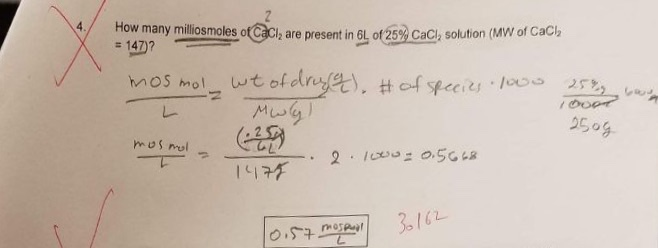 2
4. How many milliosmoles of CaCl2 are present in 6L of 25% CaCl2 solution (MW of CaCl2
= 147)?
mosmol/L = wt of drug(g/L)/MW(g) · # of species · 1000
25%
1000
250g
mosmol/L = (.25g/6L)/147g · 2 · 1000 = 0.5668
0.57 mosmol/L
30162